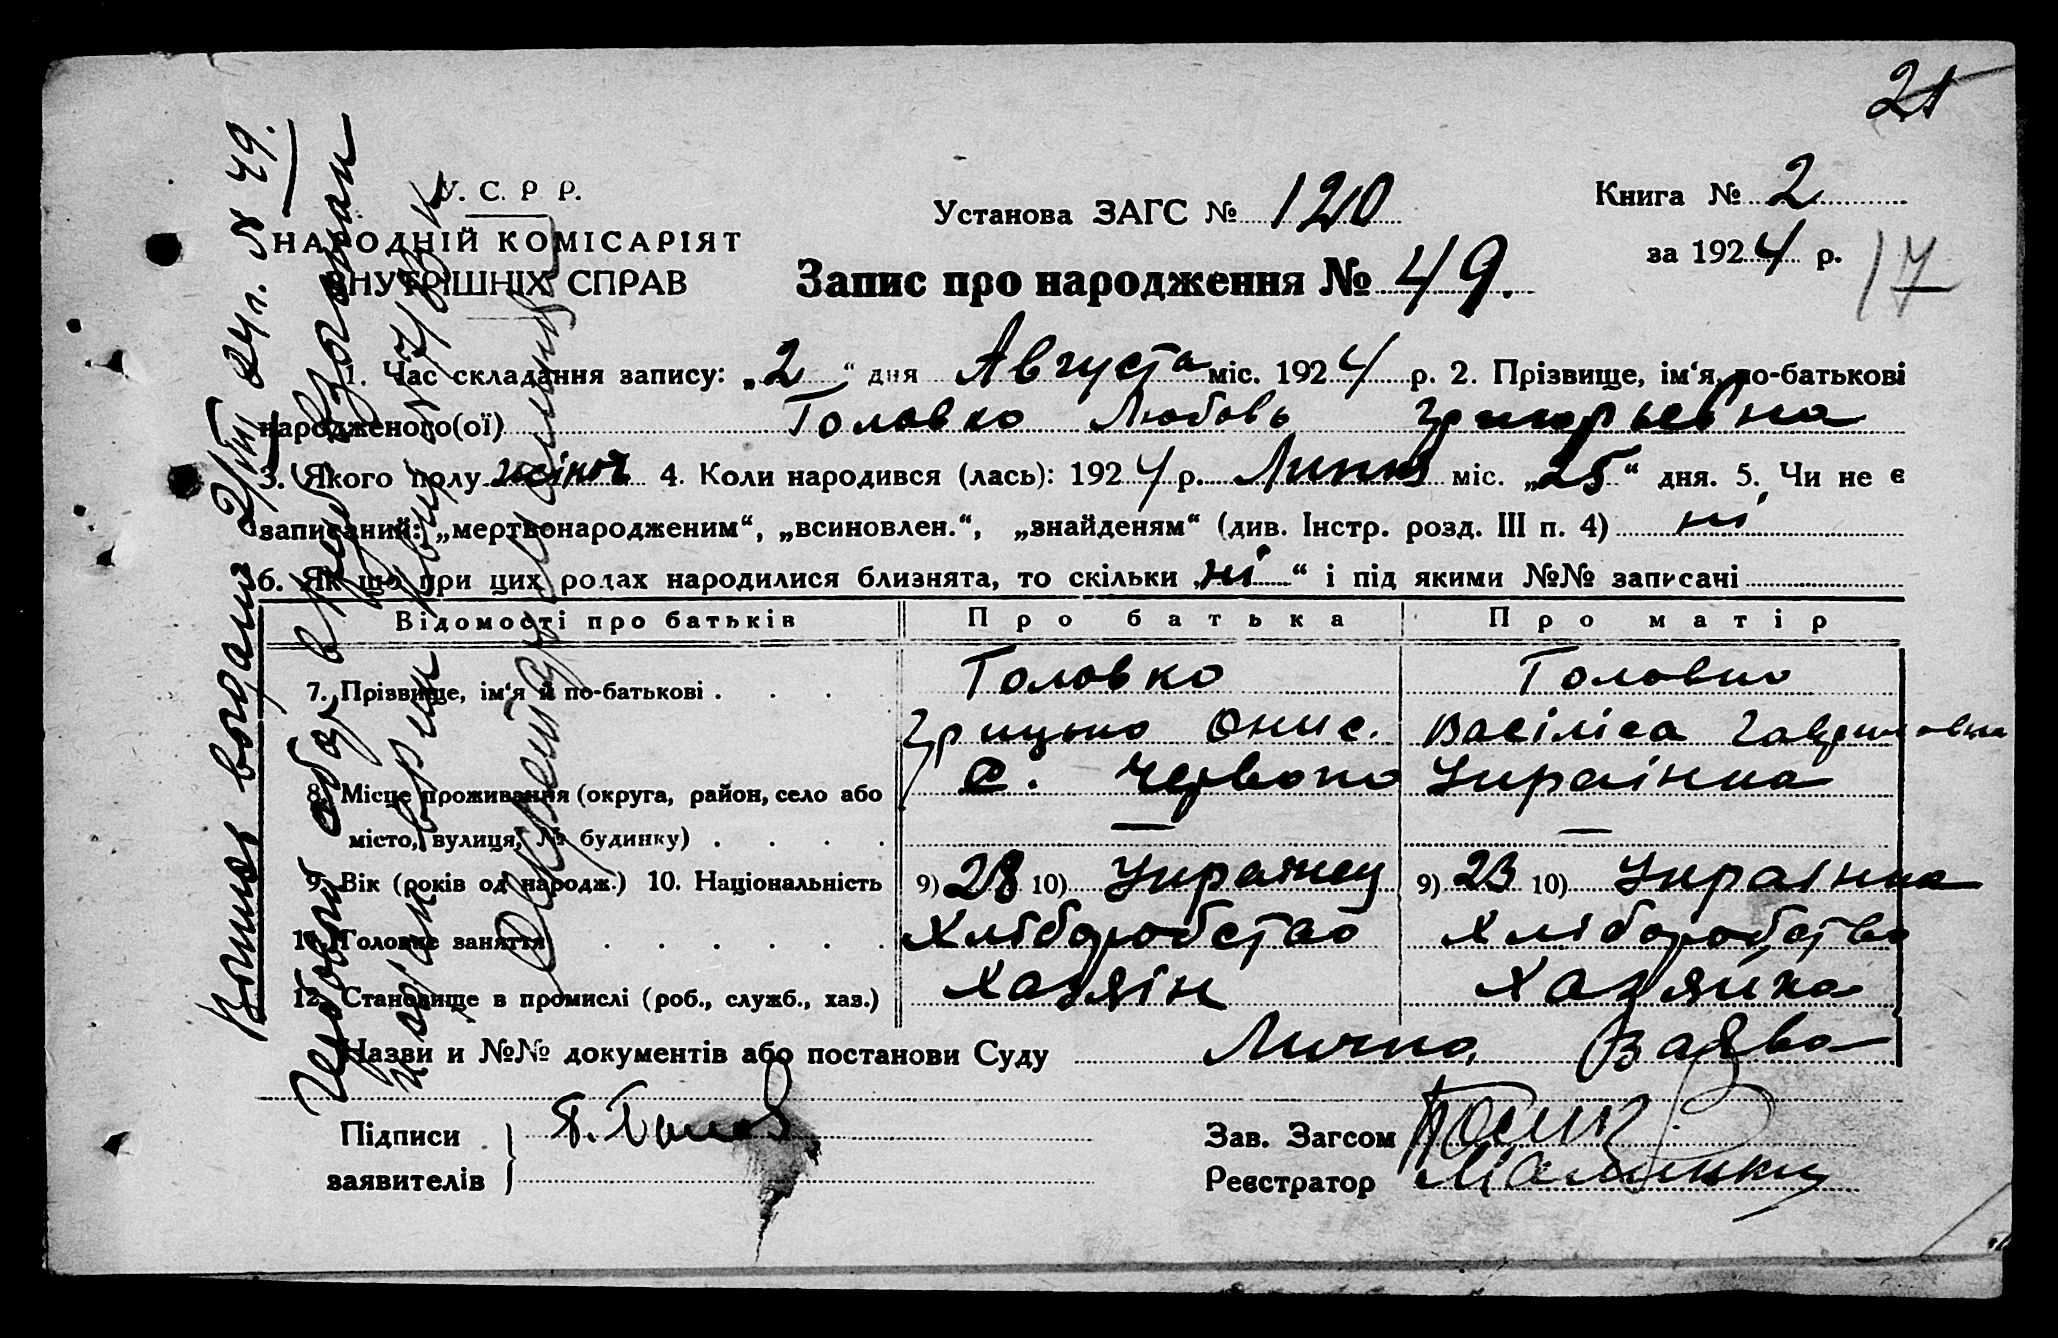 21
У. С. Р Р.
НАРОДНІЙ КОМІСАРІЯТ
ВНУТРІШНІХ СПРАВ
Установа ЗАГС № 120
Книга № 2
за 1924 р.
17
Запис про народження № 49.
1. Час складання запису: „2“ дня Августа міс. 1924 р. 2. Прізвище, ім‘я, по-батькові
народженого(ої) Головко Любовь Григорьевна
3. Якого полу жіноч 4. Коли народився (лась): 1924 р. Липня міс. „25“ дня. 5. Чи не є
записаний: „мертвонародженим“, „всиновлен.“, „знайденям“ (див. Інстр. розд. III п. 4) ні
6. Як що при цих родах народилися близнята, то скільки „ні“ і під якими №№ записані
Відомості про батьків Про батька Про матір
7. Прізвище, ім‘я й по-батькові . . . Головко Головко
Грицько Онис. Васіліса Гавриловна
8. Місце проживання (округа, район, село або с. Червоно Украінка
місто, вулиця, № будинку) . . . . — —
9. Вік (років од народж.) 10. Національність 9) 28 10) Украінец 9) 23 10) Украінка
11. Головне заняття . . . . . . Хліборобство Хліборобство
12. Становище в промислі (роб., служб., хаз.) Хазяін Хазяйка
Назви и №№ документів або постанови Суду Лична Заява
Підписи
заявителів
Зав. Загсом
Реєстратор Малинки
Выпись выдана 2/VIII 24 л. № 49.